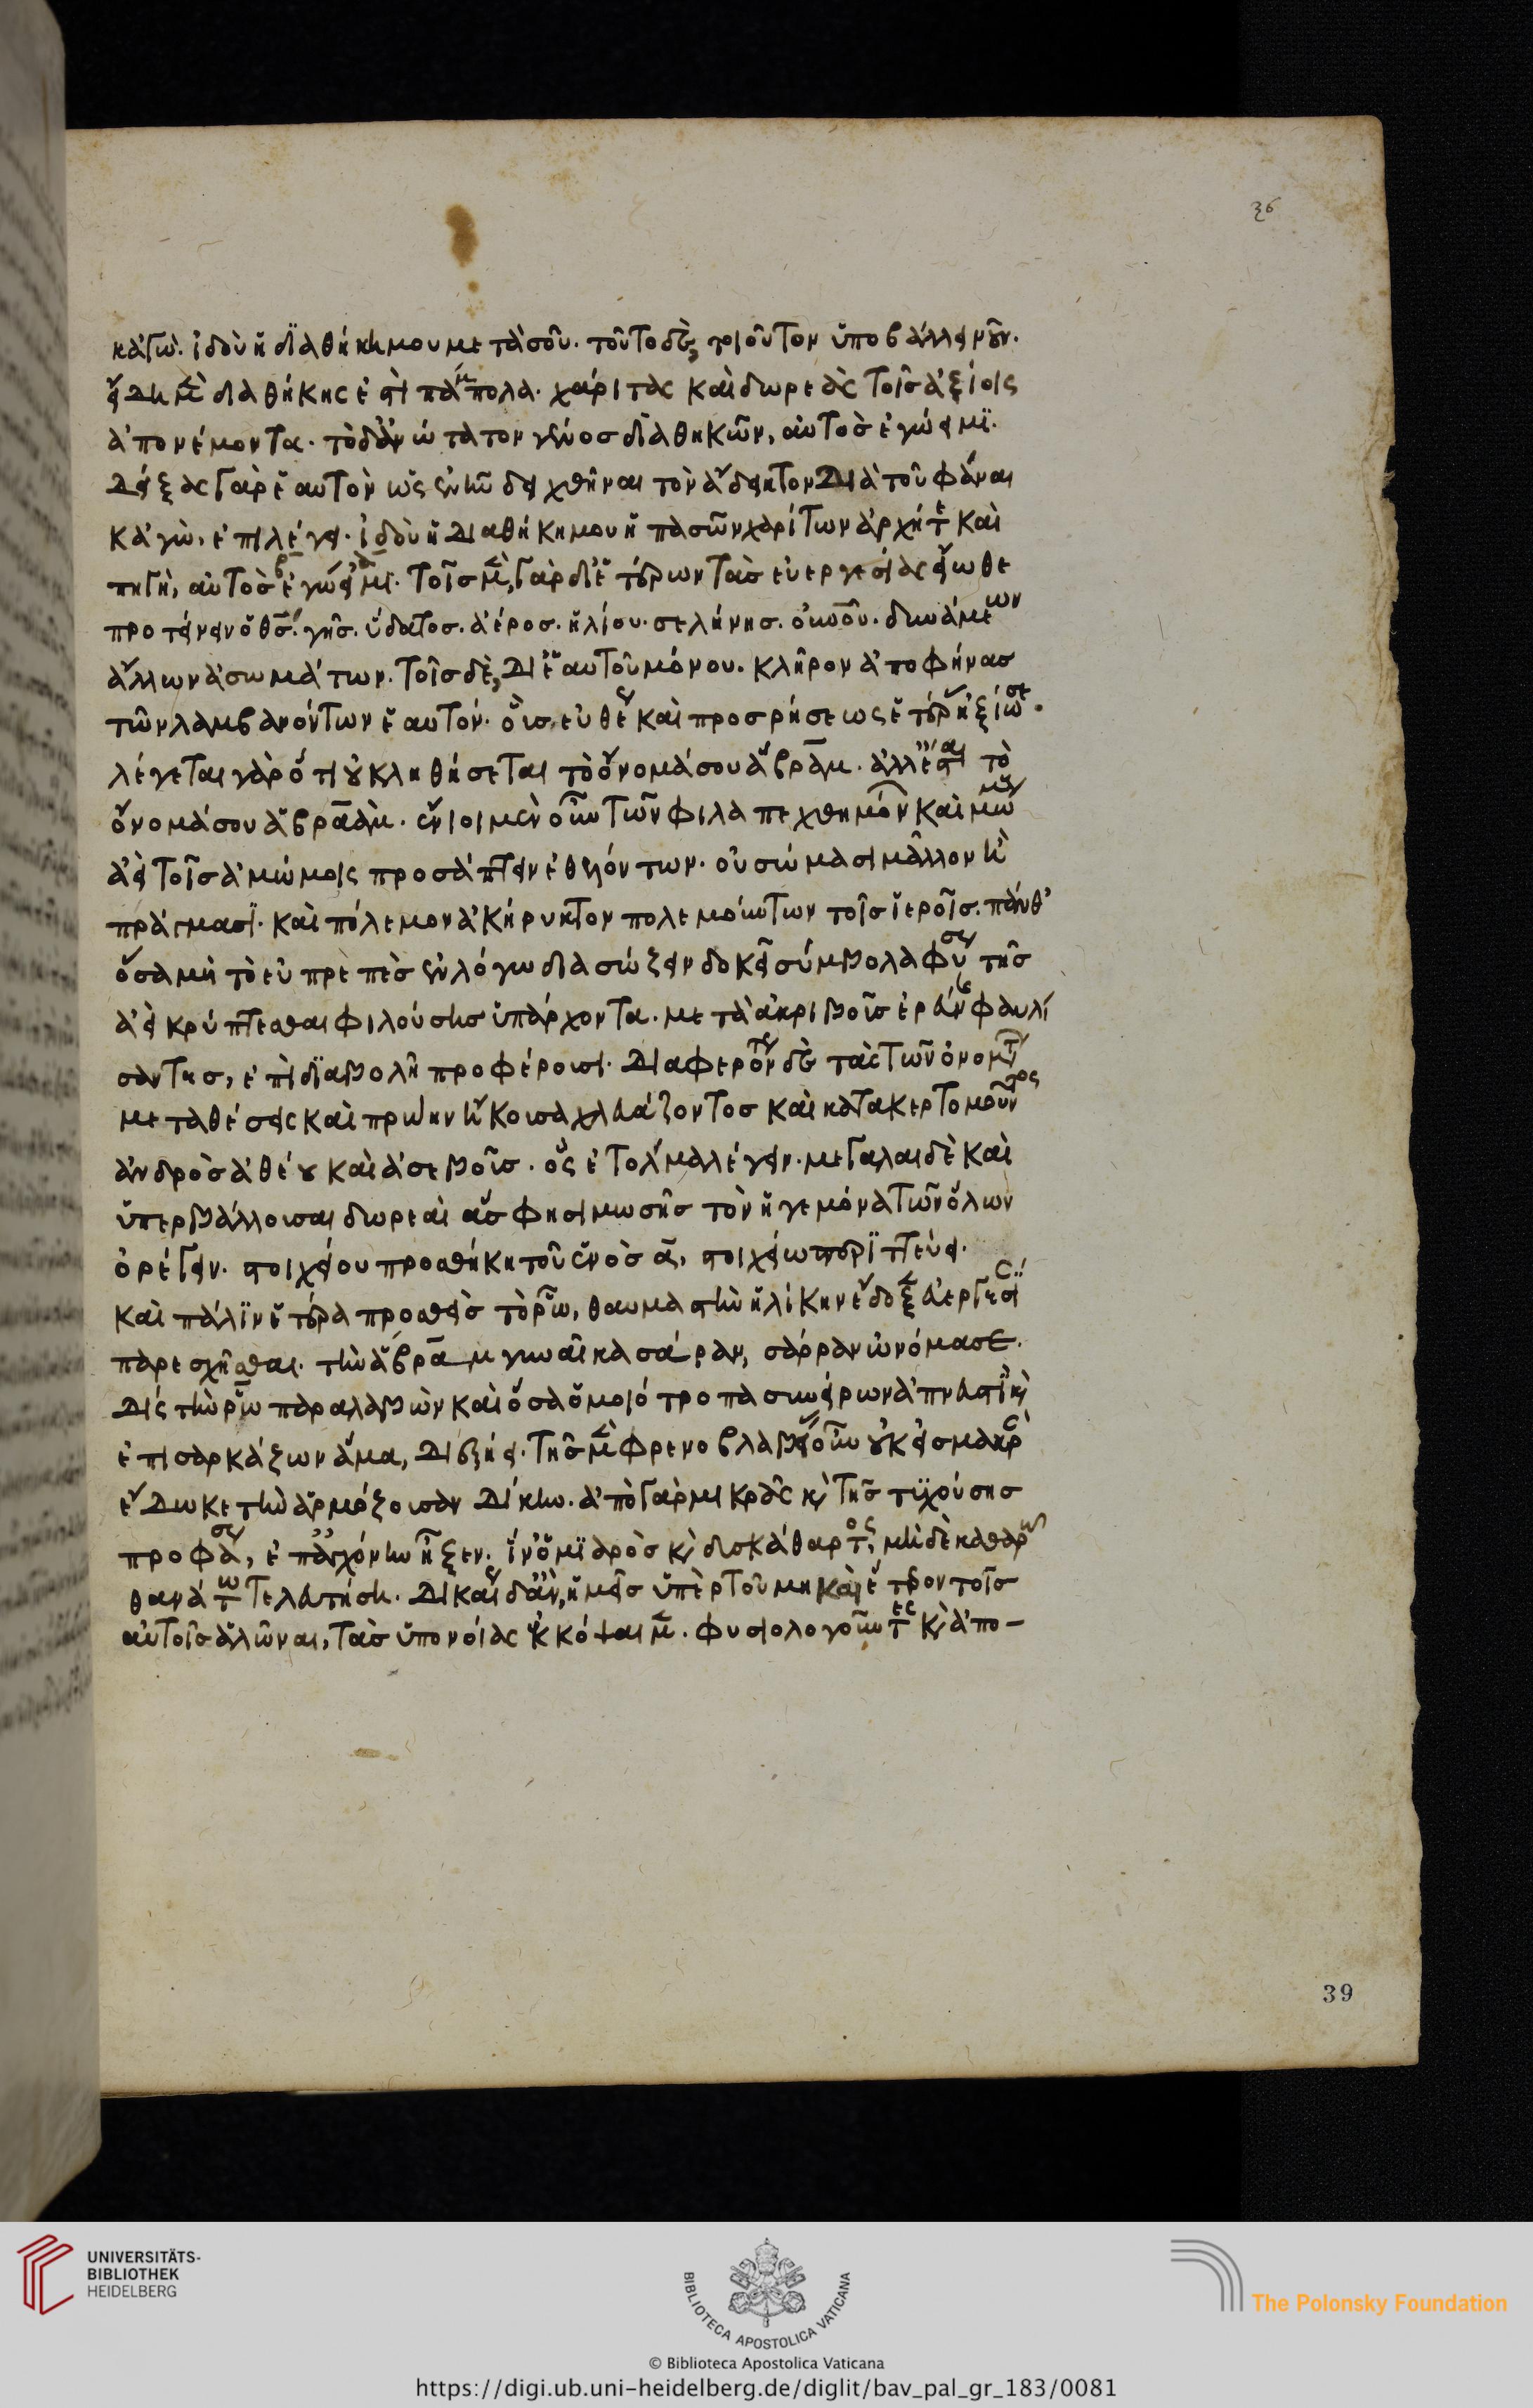 36
κἀγὼ. ἰδοὺ ἡ διαθήκη μου μετὰ σοῦ. τοῦτο δὲ, τοιοῦτον ὑποβάλλει νοῦν.
εἴδη μὲν διαθήκης ἐστὶ πάμπολα. χάριτας καὶ δωρεὰς τοῖς ἀξίοις
ἀπονέμοντα. τὸ δ' ἀνώτατον γένος διαθηκῶν, αὐτὸς ἐγώ εἰμι.
δείξας γὰρ ἑαυτὸν ὡς ἐνῆν δειχθῆναι τὸν ἄδεικτον διὰ τοῦ φάναι
κἀγὼ, ἐπιλέγει. ἰδοὺ ἡ διαθήκη μου ἡ πασῶν χαρίτων ἀρχή τε καὶ
πηγὴ, αὐτὸς ἐγώ εἰμι. τοῖς μὲν, γὰρ δι' ἑτέρων τὰς εὐεργεσίας εἴωθε
προτείνειν ὁ θσ. γῆς. ὕδατος. ἀέρος. ἡλίου. σελήνης. οὐνοῦ. δυνάμεων
ἄλλων ἀσωμάτων. τοῖς δὲ, δι' ἑαυτοῦ μόνου. κλῆρον ἀποφήνας
τῶν λαμβανόντων ἑαυτόν. οὓς, εὐθὺς καὶ προσρήσεως ἑτέρας ἠξίωσε.
λέγεται γὰρ ὅτι οὐ κληθήσεται τὸ ὄνομά σου ἄβραμ. ἀλλ' ἔσται τὸ
ὄνομά σου ἀβραάμ. ἔνιοι μὲν οὖν τῶν φιλαπεχθημόνων καὶ μώμους
ἀεὶ τοῖς ἀμώμοις προσάπτειν ἐθελόντων. οὐ σώμασι μᾶλλον ἢ
πράγμασι. καὶ πόλεμον ἀκήρυκτον πολεμούντων τοῖς ἱεροῖς. πάνθ'
ὅσα μὴ τὸ εὐπρεπὲς ἐν λόγω διασώζειν δοκεῖ σύμβολα φύσεως τῆς
ἀεὶ κρύπτεσθαι φιλούσης ὑπάρχοντα. μετὰ ἀκριβοῦς ἐρεύνης φαυλί
σαντες, ἐπὶ διαβολῆ προφέρουσι. διαφερόντως δὲ τὰς τῶν ὀνομάτων
μεταθέσεις καὶ πρώην ἤκουσα χλευάζοντος καὶ κατακερτομοῦντος
ἀνδρὸς ἀθέου καὶ ἀσεβοῦς. ὃς ἐτόλμα λέγειν. μεγάλαι δὲ καὶ
ὑπερβάλλουσαι δωρεαὶ ἅς φησι μωσῆς τὸν ἡγεμόνα τῶν ὅλων
ὀρέγειν. στοιχείου προσθήκη τοῦ ἑνὸς α, στοιχείω περιττεύει.
καὶ πάλιν ἕτερα προσθεὶς τὸ ρῶ, θαυμαστὴν ἡλίκην ἔδοξεν εὐεργεσίαν
παρεσχῆσθαι. τὴν ἄβραμ γυναῖκα σάραν, σάρραν ὠνόμασε.
δὶς τὴν ρῶ παραλαβὼν καὶ ὅσα ὁμοιότροπα συνείρων ἀπνευστὶ καὶ
ἐπισαρκάζων ἅμα, διεξήει. τῆς μὲν φρενοβλαβείας οὖν οὐκ εἰς μακρὰν
ἔδωκε τὴν ἁρμόζουσαν δίκην. ἀπὸ γὰρ μικρᾶς καὶ τῆς τυχούσης
προφάσεως, ἐπ' ἀγχόνην ἦξεν. ἵν' ὁ μιαρὸς καὶ δυσκάθαρτος, μηδὲ καθαρῶ
θανάτω τελευτήση. δικαίως δ' ἂν, ἡμεῖς ὑπὲρ τοῦ μὴ καὶ ἕτερον τοῖς
αὐτοῖς ἁλῶναι, τὰς ὑπονοίας ἐκκόψαιμεν. φυσιολογοῦντες καὶ ἀπο-
39
UNIVERSITÄTS-
BIBLIOTHEK
HEIDELBERG
BIBLIOTECA APOSTOLICA VATICANA
The Polonsky Foundation
© Biblioteca Apostolica Vaticana
https://digi.ub.uni-heidelberg.de/diglit/bav_pal_gr_183/0081